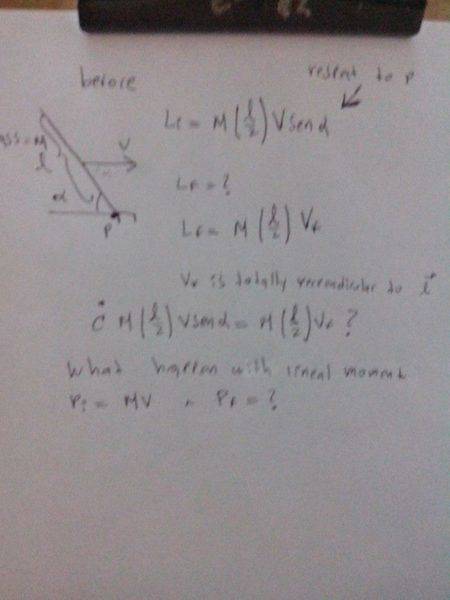 before
respect to P
Li = M(l/2) V senα
mass = M
V
l
α
P
Lf = ?
Lf = M(l/2) Vf
Vf is totally perpendicular to l⃗
¿ M(l/2) V senα = M(l/2) Vf ?
What happen with lineal moment
Pi = MV ^ Pf = ?